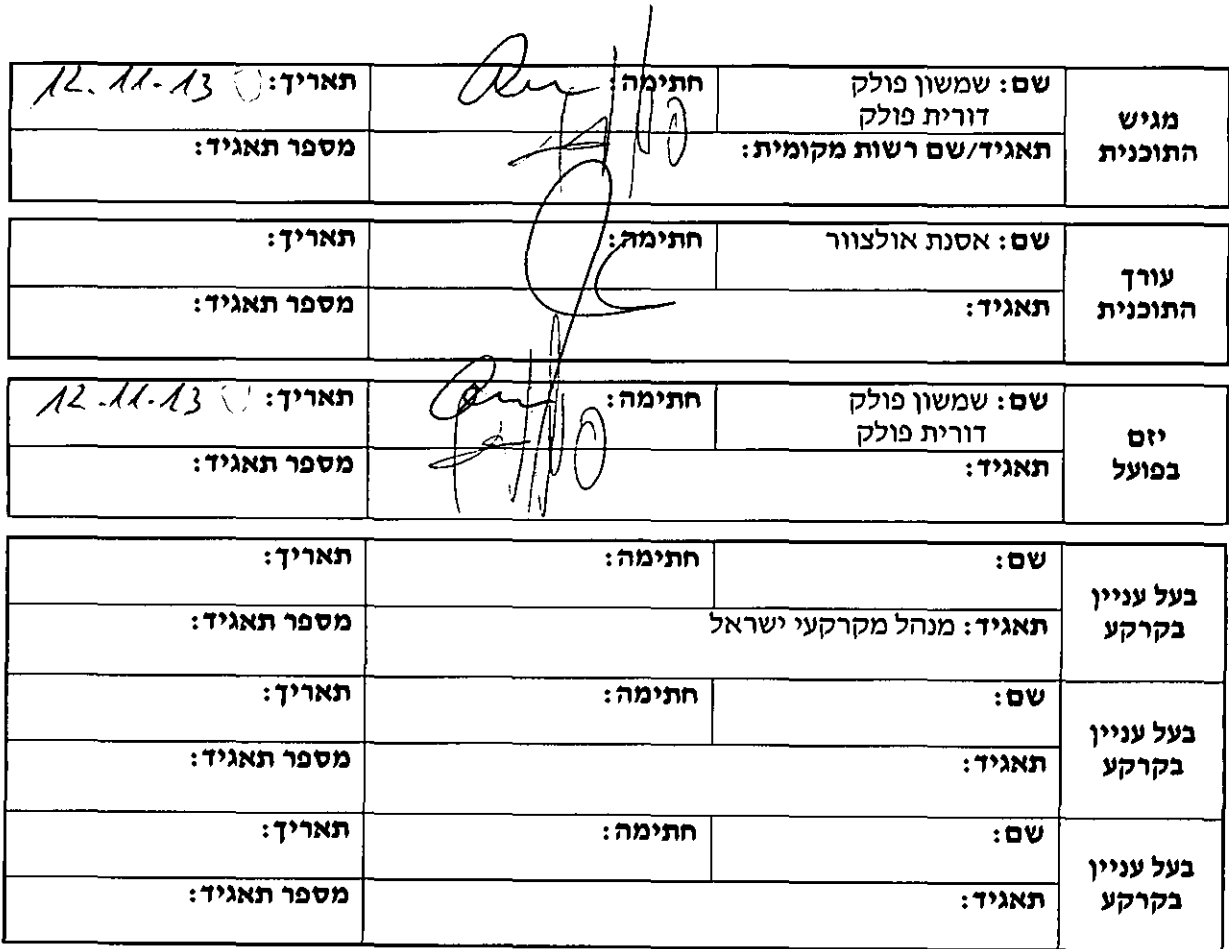 מגיש התוכנית
שם: שמשון פולק דורית פולק
חתימה:
תאריך: 12.11.13
תאגיד/שם רשות מקומית:
מספר תאגיד:
עורך התוכנית
שם: אסנת אולצוור
חתימה:
תאריך:
תאגיד:
מספר תאגיד:
יזם בפועל
שם: שמשון פולק דורית פולק
חתימה:
תאריך: 12.11.13
תאגיד:
מספר תאגיד:
בעל עניין בקרקע
שם:
חתימה:
תאריך:
תאגיד: מנהל מקרקעי ישראל
מספר תאגיד:
בעל עניין בקרקע
שם:
חתימה:
תאריך:
תאגיד:
מספר תאגיד:
בעל עניין בקרקע
שם:
חתימה:
תאריך:
תאגיד:
מספר תאגיד: